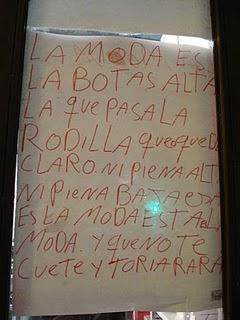 LA MODA ES
LA BOTAS ALTA
LA QUE PASA LA
RODILLA QUEOQUEDE
CLARO. NI PIENA ALT
NI PIENA BATA
ES LA MODA ESTA
MODA. Y QUE NO TE
CUETE Y TORIARARA